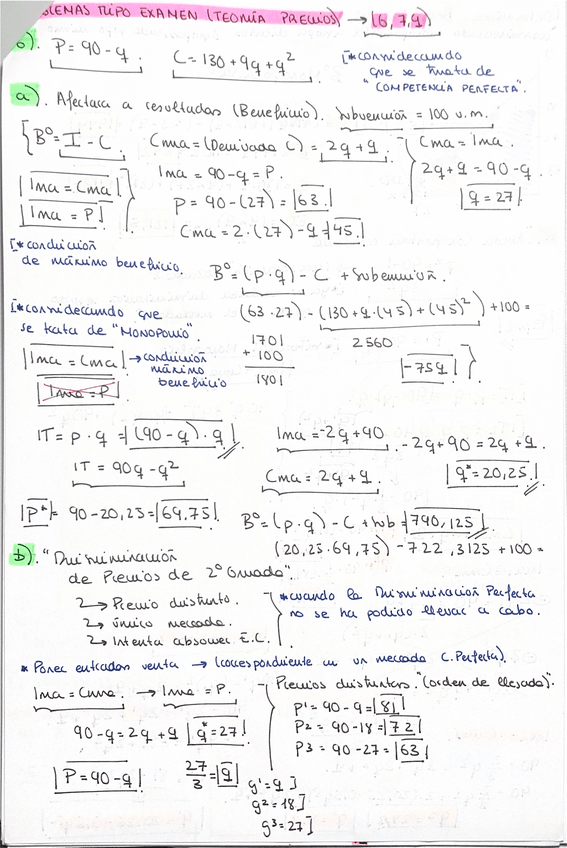 BLEMAS TIPO EXAMEN (TEORÍA PRECIOS) → (6, 7, 9)
6). P = 90 - q. C = 130 + 9q + q²
[*considerando que se trata de "COMPETENCIA PERFECTA".
a). Afectará a resultados (Beneficio). Subvención = 100 u.m.
{ Bº = I - C. Cma = (Derivada C) = 2q + 9.
Cma = Ima.
2q + 9 = 90 - q.
q = 27.
Ima = Cma
Ima = P
Ima = 90 - q = P.
P = 90 - (27) = 63.
Cma = 2·(27) - 9 = 45.
[*condición de máximo beneficio.
Bº = (p·q) - C + Subvención.
(63·27) - (130 + 9·(45) + (45)²) + 100 =
1701
+ 100
1801
2560
-759
[*considerando que se trata de "MONOPOLIO".
Ima = Cma → condición máximo beneficio
Ima = P
IT = p·q = (90 - q)·q
IT = 90q - q²
Ima = -2q + 90
Cma = 2q + 9.
-2q + 90 = 2q + 9.
q* = 20,25.
P* = 90 - 20,25 = 69,75.
Bº = (p·q) - C + Sub = 790,125.
(20,25·69,75) - 722,3125 + 100 =
b). "Discriminación de Precios de 2º Grado".
→ Precio distinto.
→ único mercado.
→ Intenta absorver E.C.
*cuando la Discriminación Perfecta no se ha podido llevar a cabo.
* Poner entradas venta → (correspondiente en un mercado C. Perfecta).
Ima = Cma. → Ima = P.
90 - q = 2q + 9 q* = 27.
P = 90 - q
27/3 = 9
Precios distintos. "(orden de llegada)".
P1 = 90 - 9 = 81
P2 = 90 - 18 = 72
P3 = 90 - 27 = 63
q1 = 9]
q2 = 18]
q3 = 27]